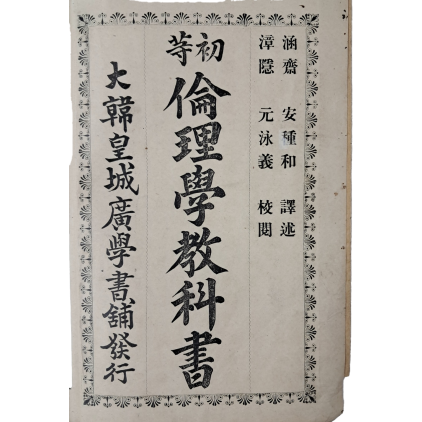 涵齋 安種和 譯述
漳隱 元泳義 校閱
初等
倫理學教科書
大韓皇城廣學書舖發行